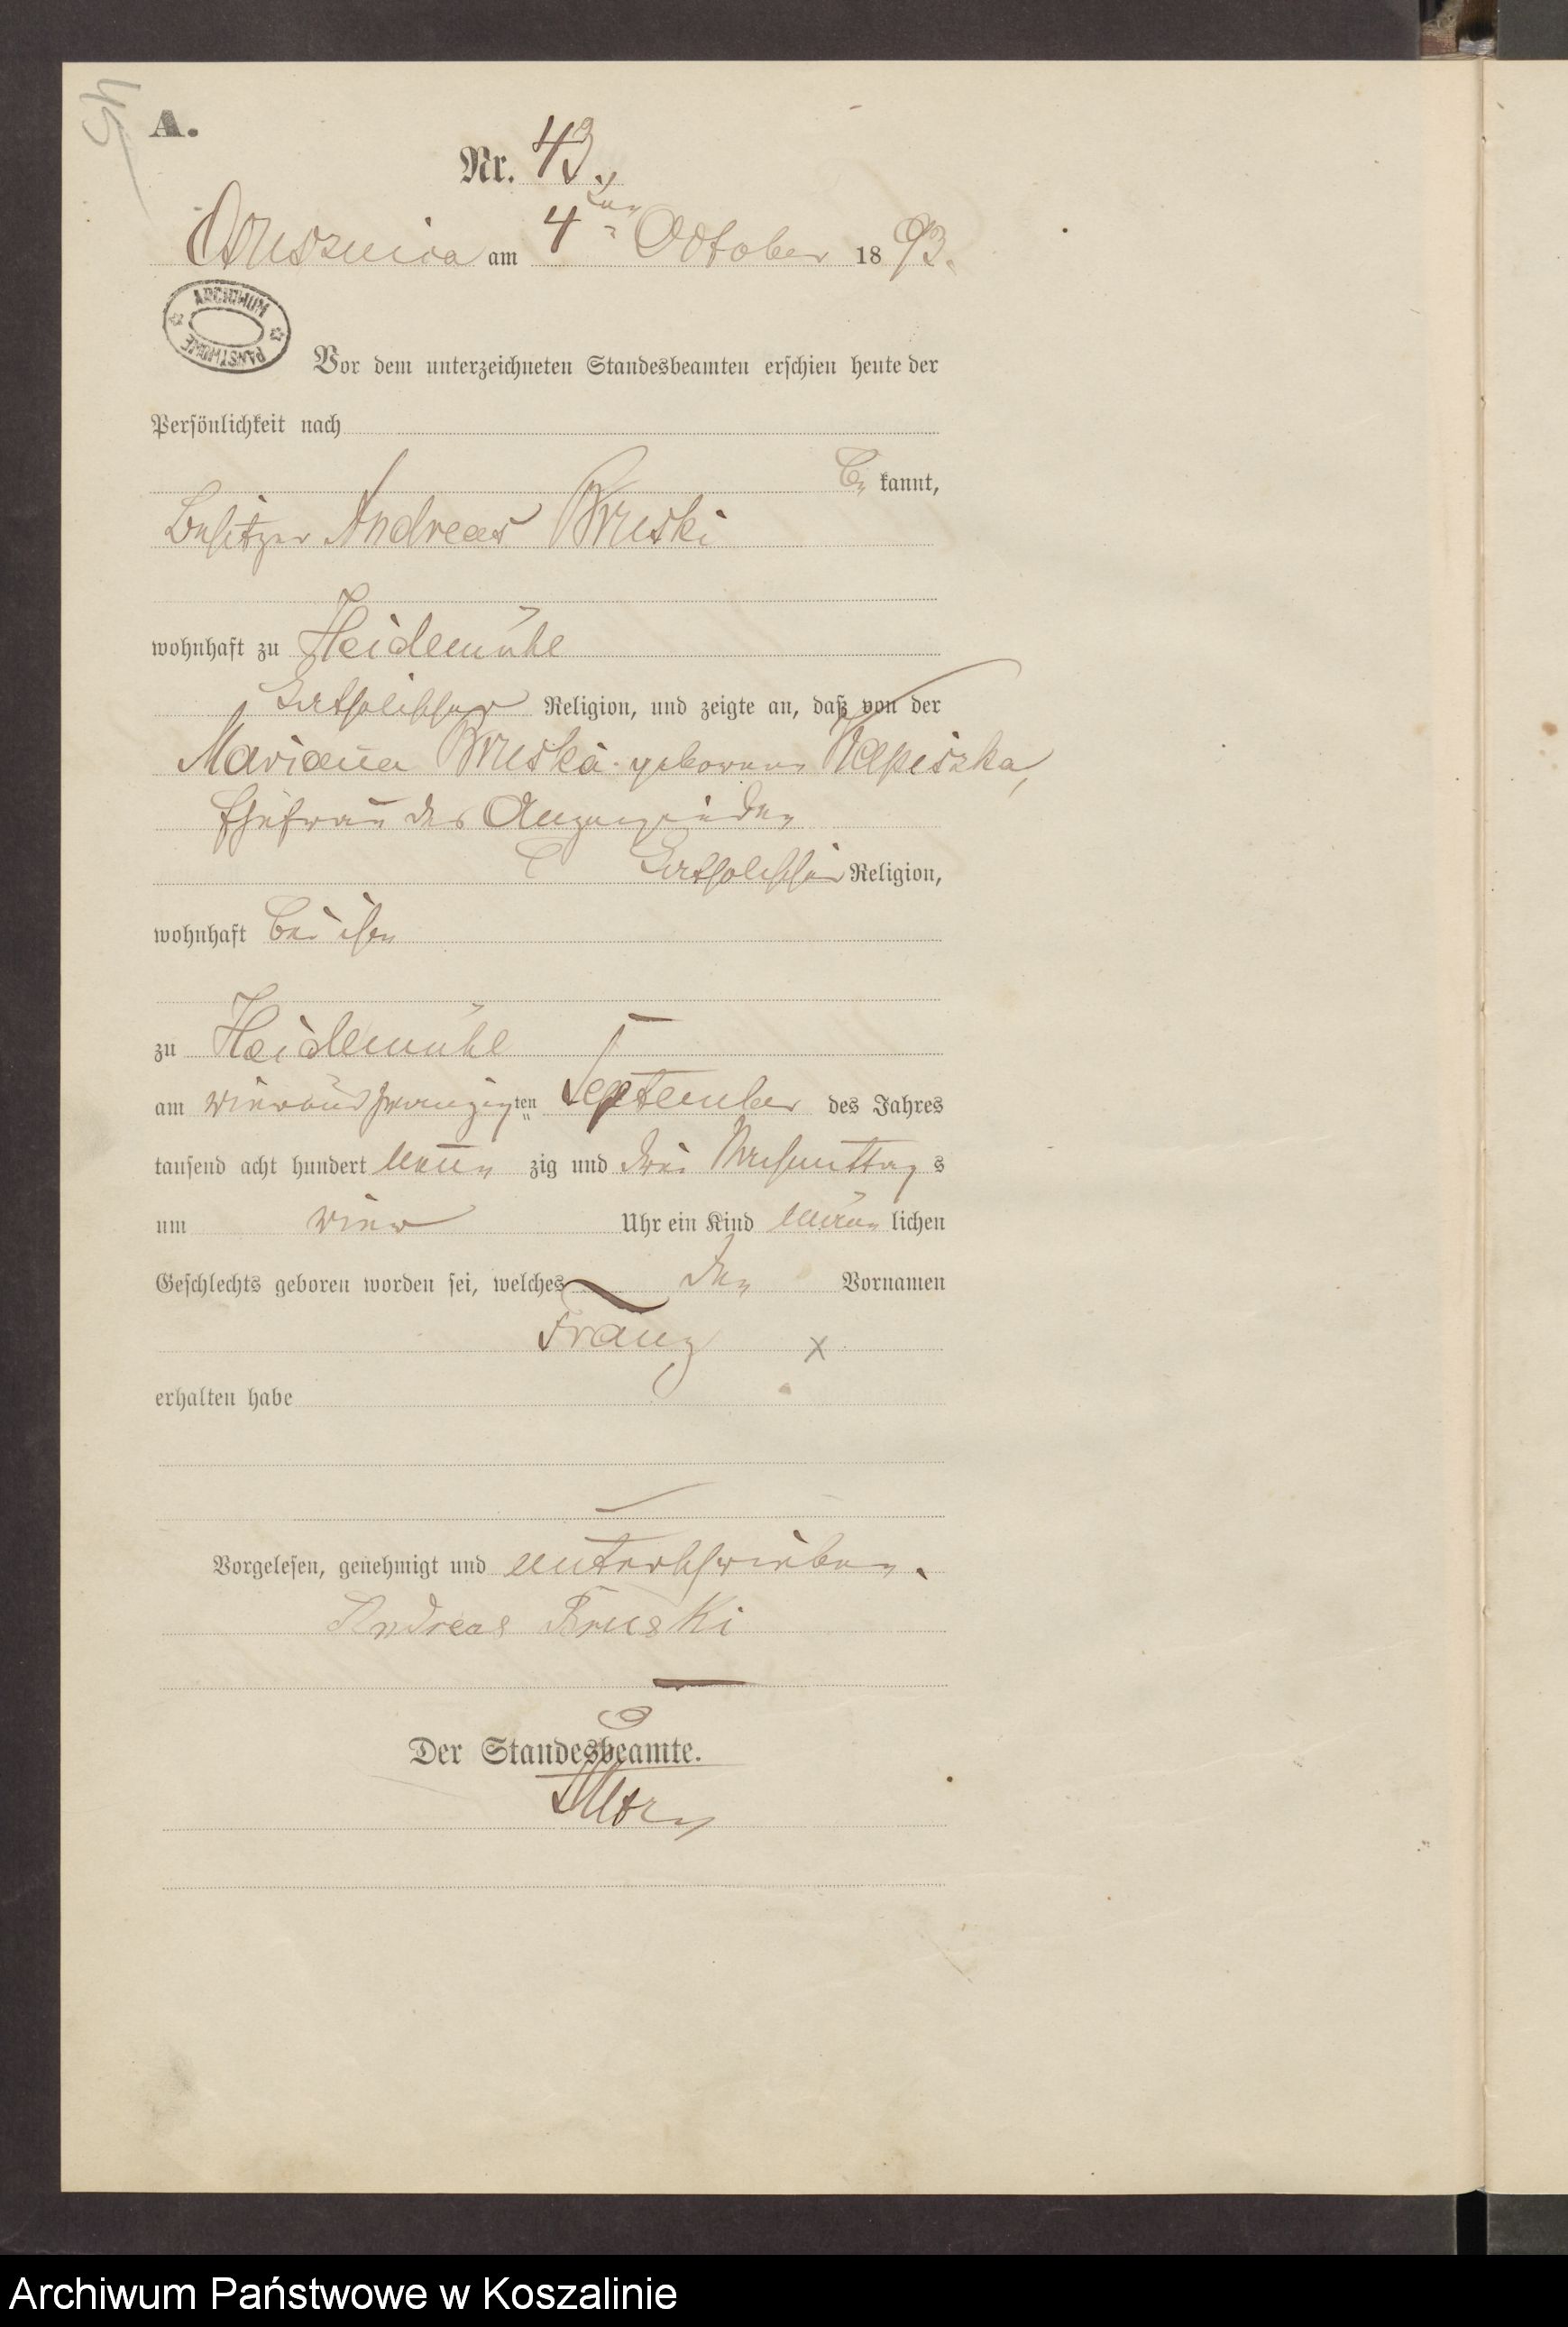 45
A.
Nr. 43.
Ossusznica am 4ten October 1893.
ARCHIWUM PAŃSTWOWE
Vor dem unterzeichneten Standesbeamten erschien heute der
Persönlichkeit nach
be kannt,
Besitzer Andreas Bruski
wohnhaft zu Heidemühl
katholischer Religion, und zeigte an, daß von der
Marianna Bruska geborene Kapiszka,
Ehefrau des Anzeigenden
katholischer Religion,
wohnhaft bei ihm
zu Heidemühl
am vierundzwanzigten September des Jahres
tausend acht hundert neun zig und drei Nachmittag s
um vier Uhr ein Kind männ lichen
Geschlechts geboren worden sei, welches den Vornamen
Franz x
erhalten habe
Vorgelesen, genehmigt und unterschrieben.
Andreas Bruski
Der Standesbeamte.
Archiwum Państwowe w Koszalinie